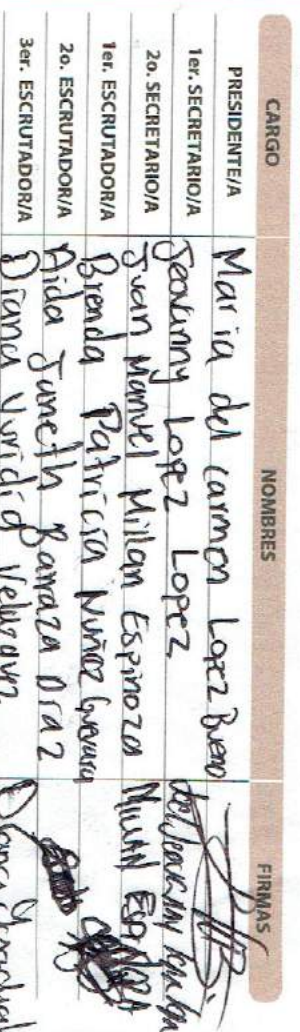 CARGO NOMBRES FIRMAS
PRESIDENTE/A Maria del carmen Lopez Bueno
1er. SECRETARIO/A Jeovanny Lopez Lopez
2o. SECRETARIO/A Juan Manuel Millan Espinoza MILLAN ESPINOZA
1er. ESCRUTADOR/A Brenda Patricia Nuñez Guevara
2o. ESCRUTADOR/A Aida Juneth Barraza Diaz
3er. ESCRUTADOR/A Diana Viridia